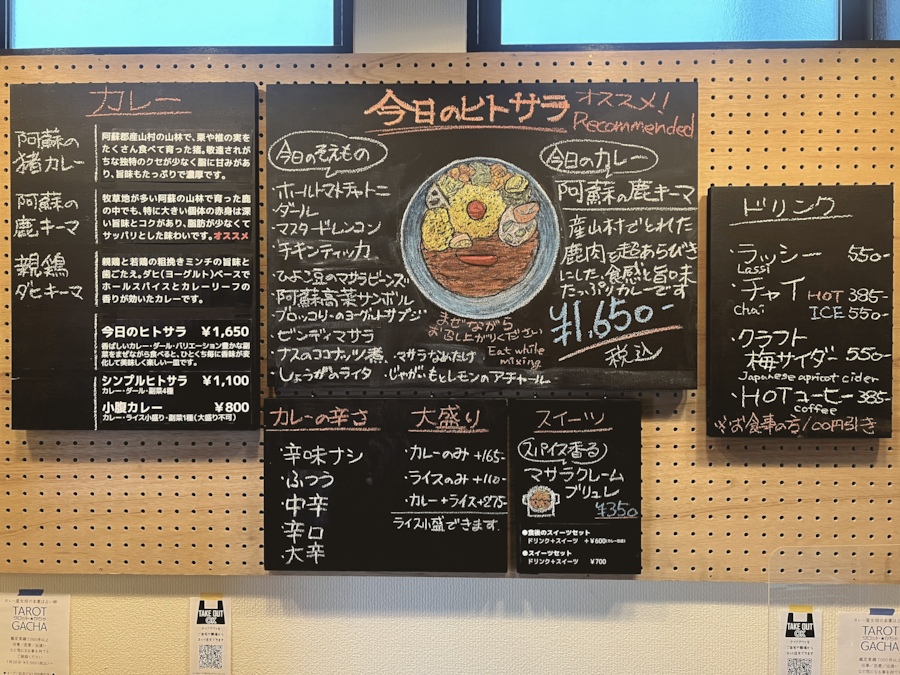 カレー
阿蘇の
猪カレー
阿蘇郡産山村の山林で、栗や椎の実を
たくさん食べて育った猪。敬遠されが
ちな独特のクセが少なく脂に甘みがあ
り、旨味もたっぷりで濃厚です。
阿蘇の
鹿キーマ
牧草地が多い阿蘇の山林で育った鹿
の中でも、特に大きい個体の赤身は深
い旨味とコクがあり、脂肪が少なくて
サッパリとした味わいです。オススメ
親鶏
ダヒキーマ
親鶏と若鶏の粗挽きミンチの旨味と
歯ごたえ。ダヒ(ヨーグルト)ベースで
ホールスパイスとカレーリーフの
香りが効いたカレーです。
今日のヒトサラ ¥1,650
香ばしいカレー・ダール・バリエーション豊かな副
菜をまぜながら食べると、ひとくち毎に香味が変
化して美味しく楽しい一皿です。
シンプルヒトサラ ¥1,100
カレー・ダール・副菜4種
小腹カレー ¥800
カレー・ライス小盛り・副菜1種(大盛り不可)
今日のヒトサラ
オススメ!
Recommended
今日のそえもの
・ホールトマトチャトニ
・ダール
・マスタードレンコン
・チキンティッカ
・ひよこ豆のマサラビーンズ
・阿蘇高菜サンボル
・ブロッコリーのヨーグルトサブジ
・ビンディマサラ
・ナスのココナッツ煮 ・マサラなめたけ
・しょうがのライタ ・じゃがいもとレモンのアチャール
まぜながら
お召し上がりください
Eat while
mixing
今日のカレー
阿蘇の鹿キーマ
産山村でとれた
鹿肉を超あらびき
にした、食感と旨味
たっぷりカレーです
¥1,650-
税込
ドリンク
・ラッシー 550-
Lassi
・チャイ HOT 385-
chai ICE 550-
・クラフト
梅サイダー 550-
Japanese apricot cider
・HOTコーヒー 385-
coffee
※お食事の方100円引き
カレーの辛さ
・辛味ナシ
・ふつう
・中辛
・辛口
・大辛
大盛り
・カレーのみ +165-
・ライスのみ +110-
・カレー+ライス+275-
ライス小盛できます
スイーツ
スパイス香る
マサラクレーム
ブリュレ
¥350
●食後のスイーツセット
ドリンク+スイーツ +¥600
●スイーツセット
ドリンク+スイーツ ¥700
TAROT
GACHA
TAKE OUT
OK
TAKE OUT
OK
TAROT
GACHA